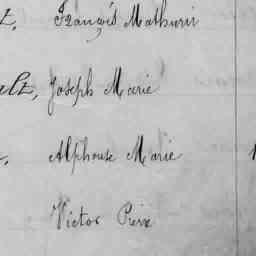 t, François Mathurin
ult, Joseph Marie
Alphonse Marie
Victor Pierre